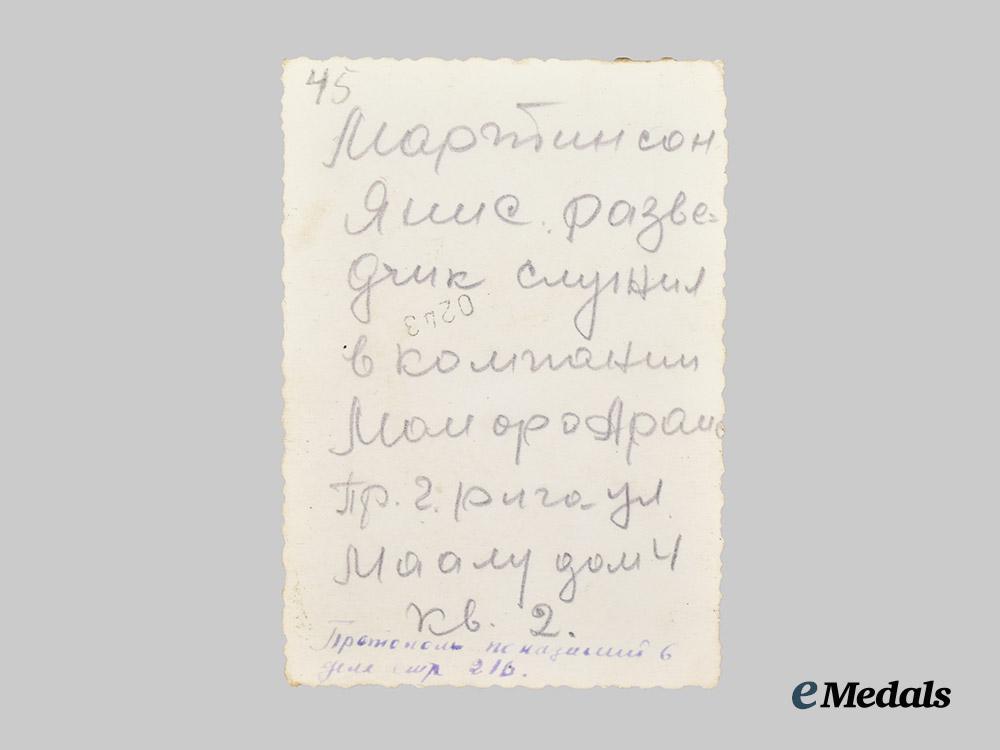 45
Мартинсон
Янис. разве-
дчик служил
0243
в компании
Пр. г. рига ул
Маалу дом 4
кв. 2.
Протокол показаний в
деле стр 216.
eMedals